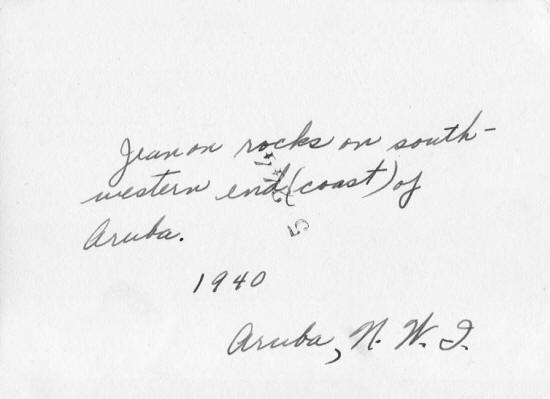 Jean on rocks on south-
western end (coast) of
Aruba.
1940
Aruba, N. W. I.